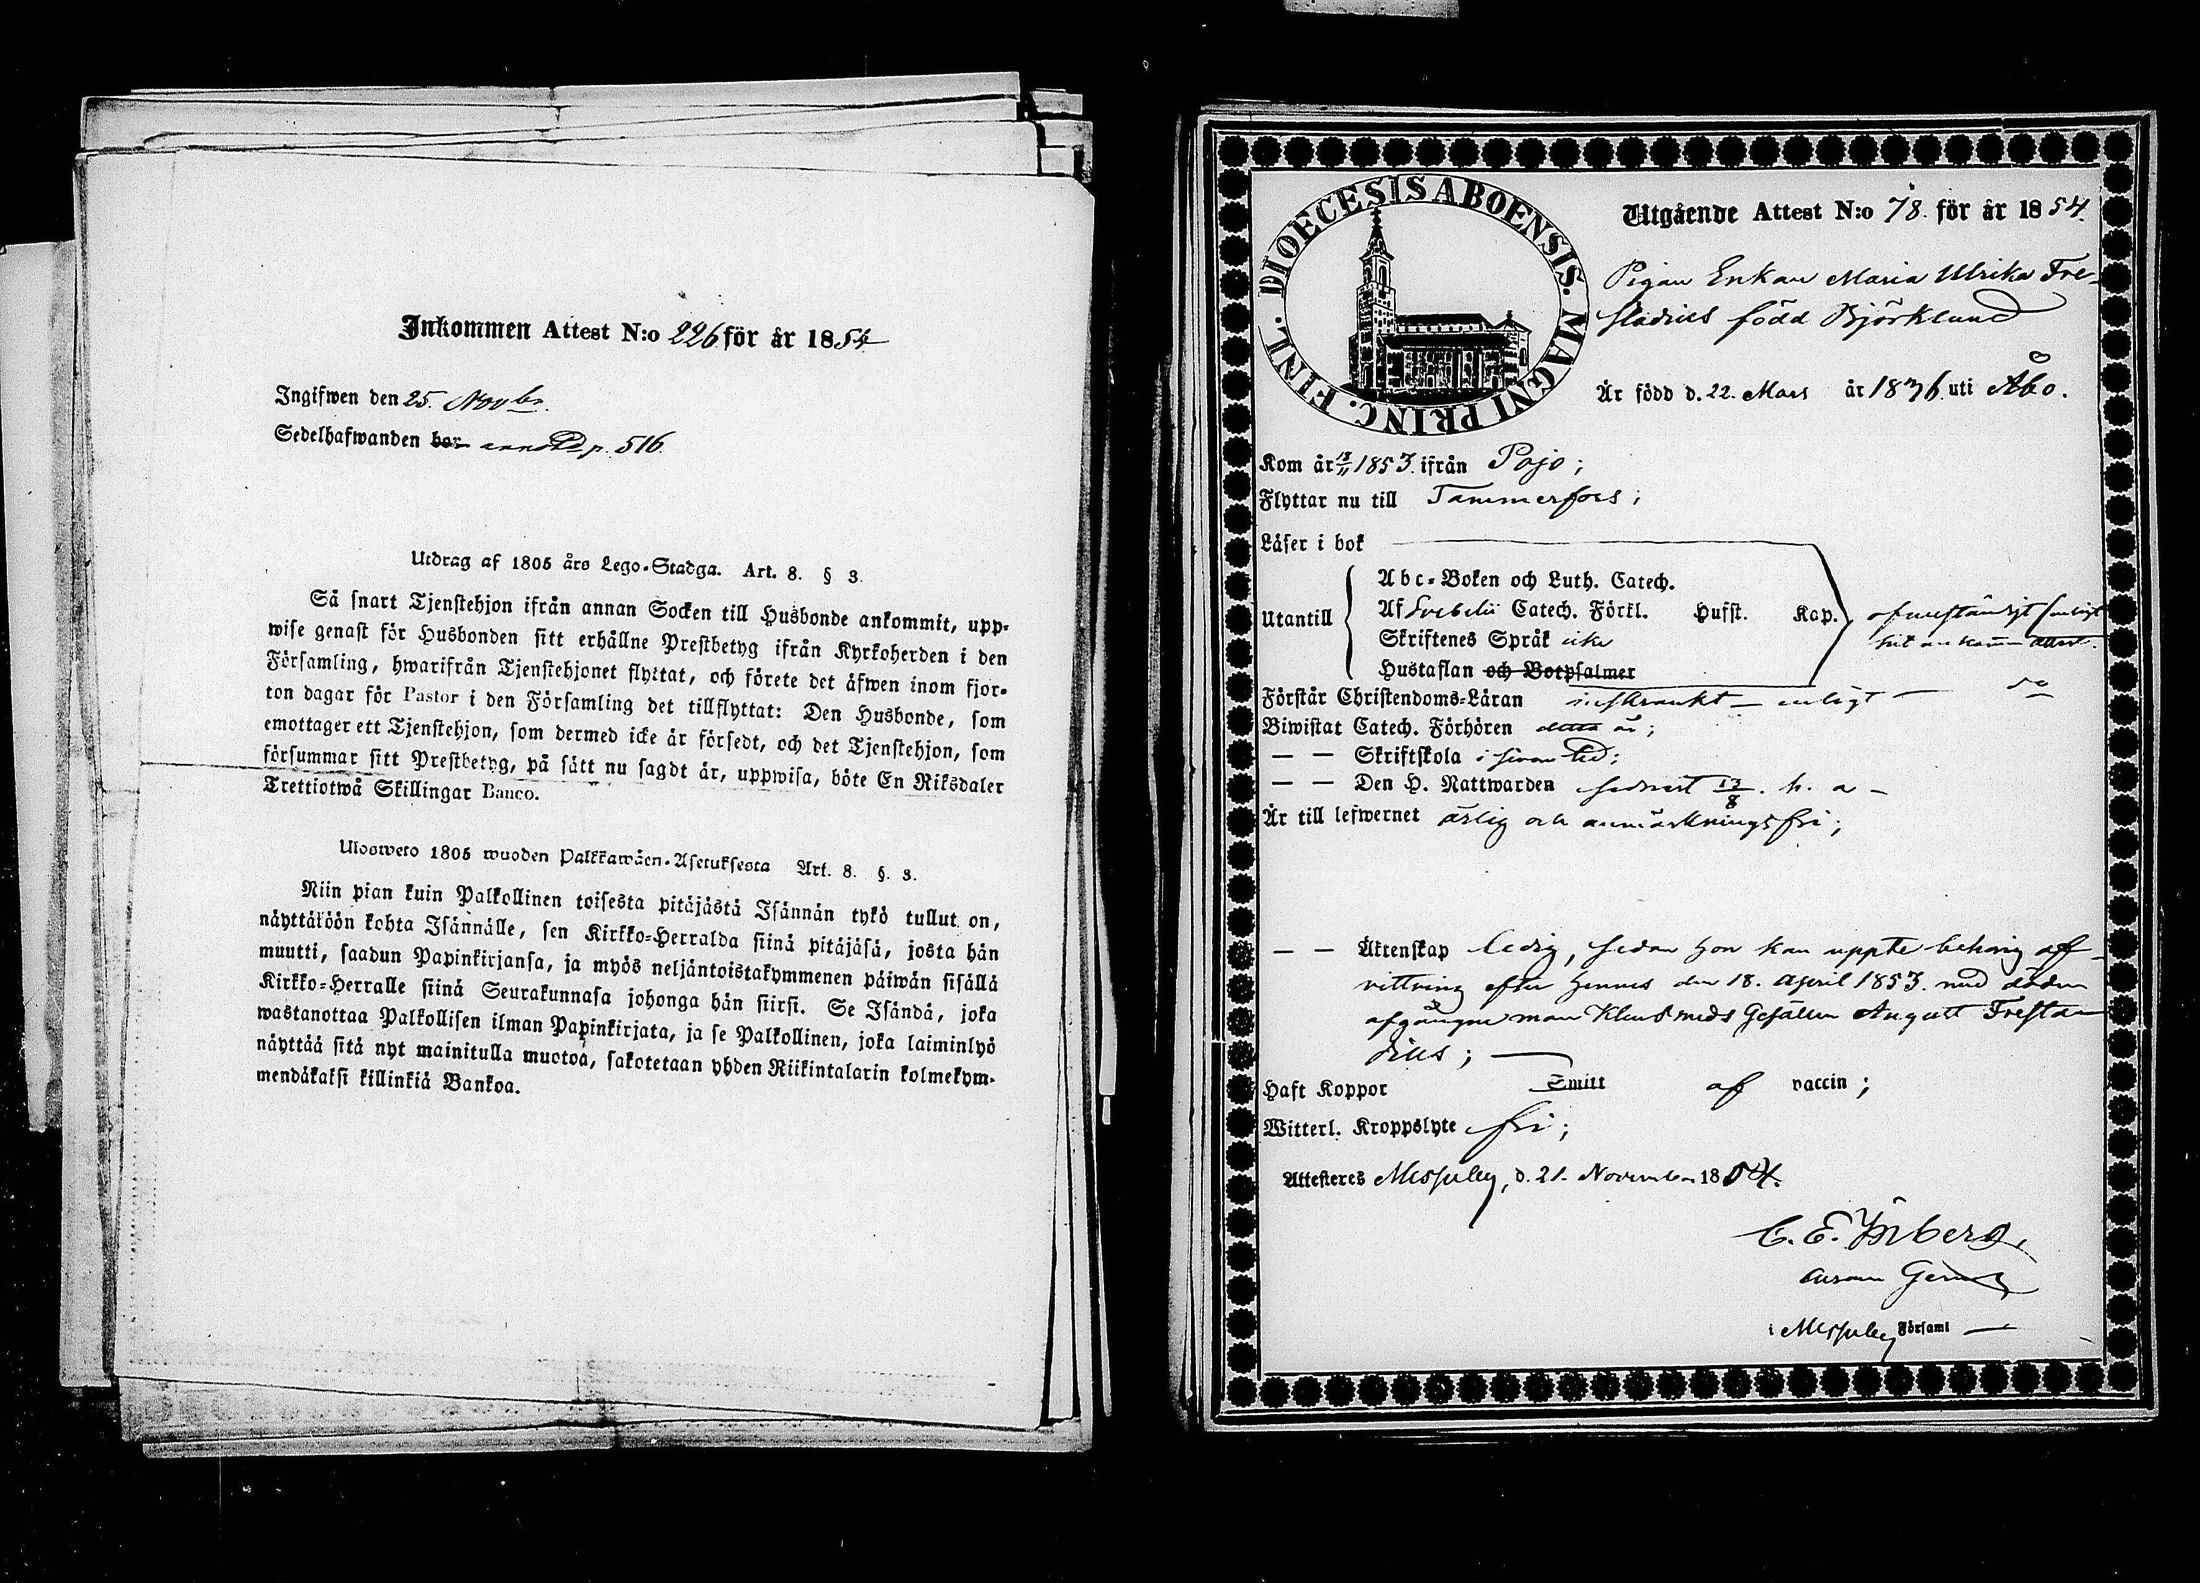 Inkommen Attest N:o 226 för år 1854
Ingifwen den 25. Novbr.
Sedelhafwanden bor p. 516.
Utdrag af 1805 års Lego-Stadga. Art. 8. § 3.
Så snart Tjenstehjon ifrån annan Socken till Husbonde ankommit, upp-
wise genast för Husbonden sitt erhållne Prestbetyg ifrån Kyrkoherden i den
Församling, hwarifrån Tjenstehjonet flyttat, och förete det äfwen inom fjor-
ton dagar för Pastor i den Församling det tillflyttat: Den Husbonde, som
emottager ett Tjenstehjon, som dermed icke är försedt, och det Tjenstehjon, som
försummar sitt Prestbetyg, på sätt nu sagdt är, uppwisa, böte En Riksdaler
Trettiotwå Skillingar Banco.
Ulosweto 1805 wuoden Palkkawäen-Asetuksesta Art. 8. §. 3.
Niin pian kuin Palkollinen toisesta pitäjästä Isännän tykö tullut on,
näyttäköön kohta Isännälle, sen Kirkko-Herralda siinä pitäjäsä, josta hän
muutti, saadun Papinkirjansa, ja myös neljäntoistakymmenen päiwän sisällä
Kirkko-Herralle siinä Seurakunnasa johonga hän siirsi. Se Isändä, joka
wastanottaa Palkollisen ilman Papinkirjata, ja se Palkollinen, joka laiminlyö
näyttää sitä nyt mainitulla muotoa, sakotetaan yhden Riikintalarin kolmekym-
mendäkaksi killinkiä Bankoa.
DIOECESIS ABOENSIS. MAGNI PRINC. FINL.
Utgående Attest N:o 78. för år 1854.
Pigan Enkan Maria Ulrika Fre-
stadius född Björklund
Är född d. 22. Mars år 1836 uti Åbo.
Kom år 13/11 1853. ifrån Pojo;
Flyttar nu till Tammerfors;
Läser i bok
Utantill
Abc-Boken och Luth. Catech.
Af Svebelii Catech. Förkl. Husst. Kap.
Skriftenes Språk icke
Hustaflan och Botpsalmer
hit ankomn attest.
Förstår Christendoms-Läran inskränkt - enligt - do
Biwistat Catech. Förhören detta år;
— — Skriftskola i sinom tid;
— — Den H. Nattwarden sednast 13/8. h. a -
Är till lefwernet ärlig och anmärkningsfri;
— — Äktenskap ledig, sedan hon kan uppte behörig af-
vittring efter hennes den 18. April 1853. med döden
afgångne man Klensmeds Gesällen August Fresta-
dius; —
Haft Koppor Smitt af vaccin;
Witterl. Kroppslyte fri;
Attesteres Messuby, d. 21. November 1854.
C. E.
i Messuby Församl —